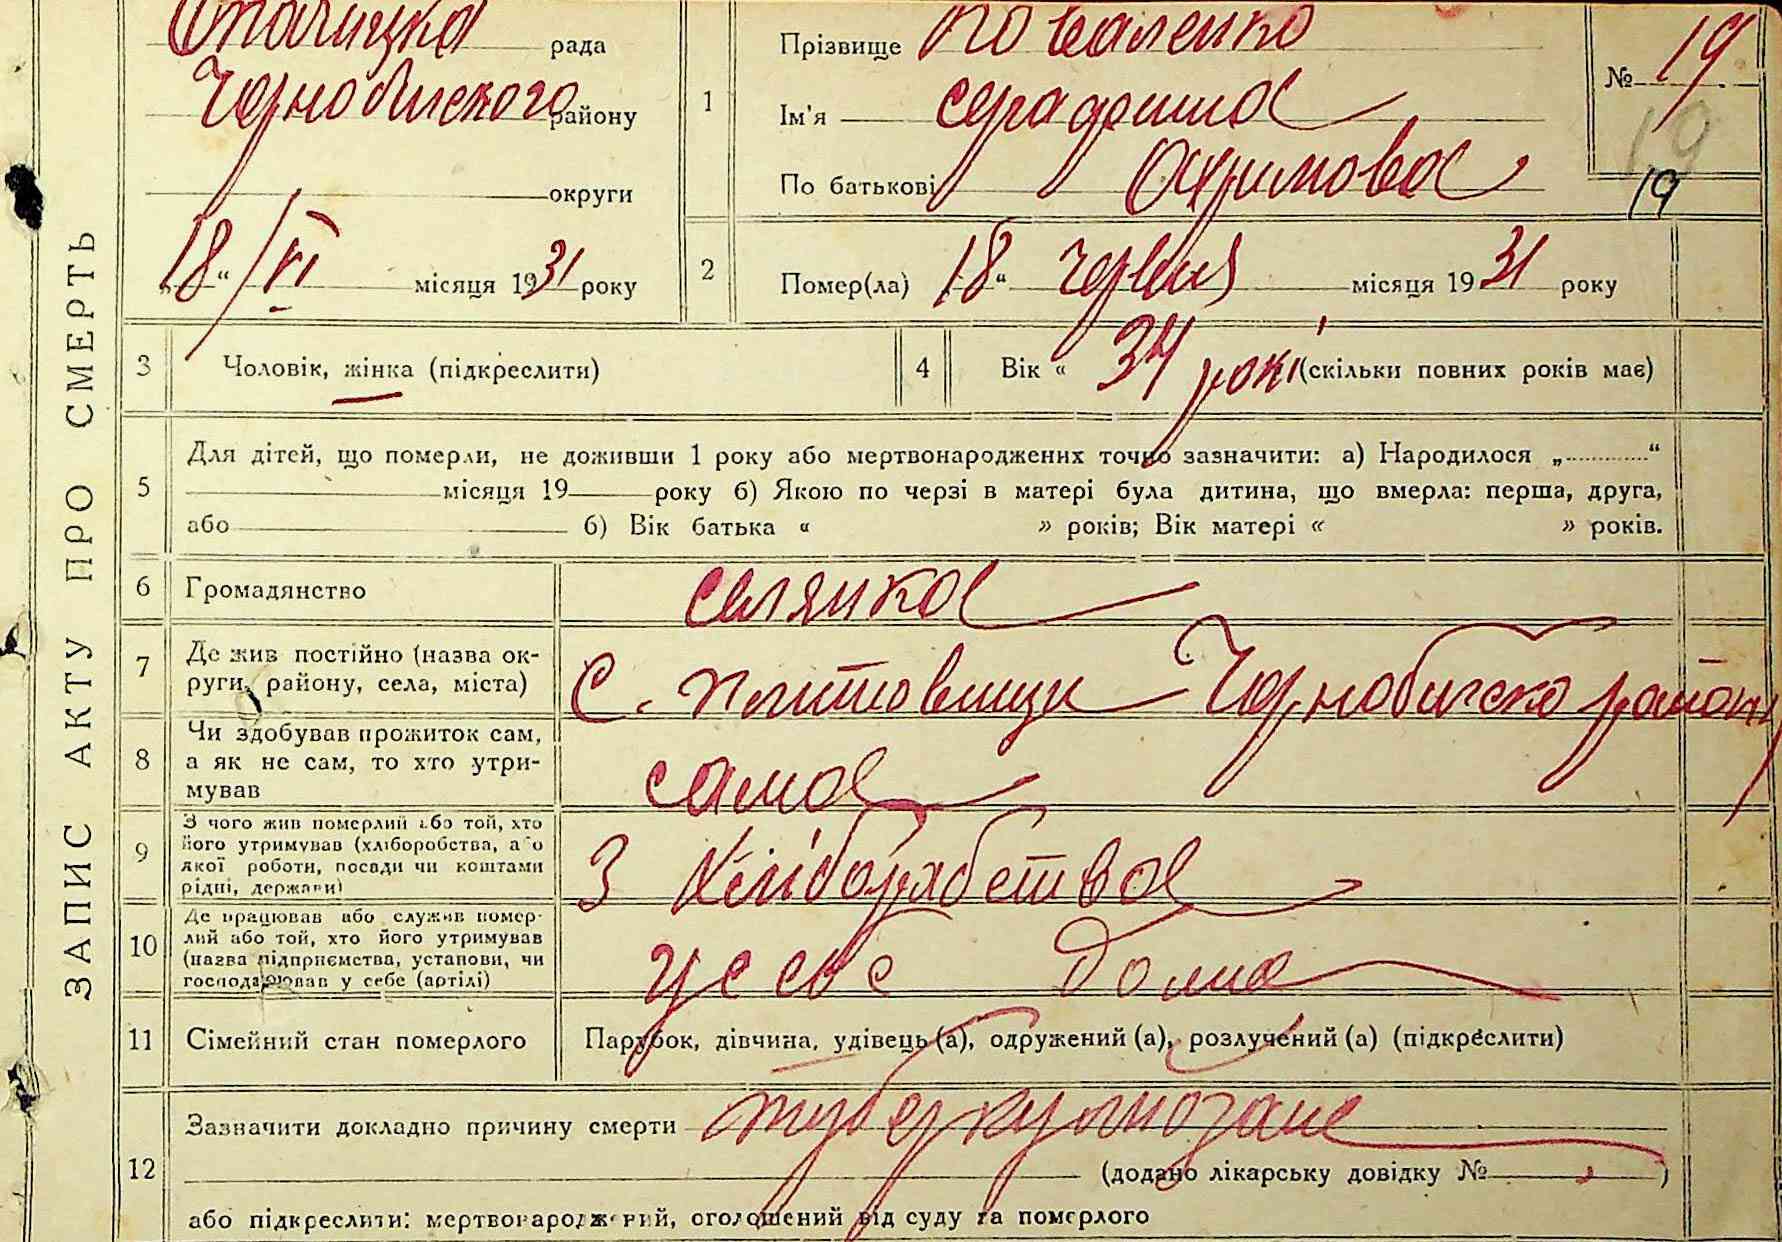 ЗАПИС АКТУ ПРО СМЕРТЬ
рада
Чорнобильського району
округи
„18“ /VI місяця 1931 року
1
Прізвище Коваленко
Ім'я Серафима
По батькові Охримовна
№ 19
19
19
2
Помер(ла) „18“ червня місяця 1931 року
3
Чоловік, жінка (підкреслити)
4
Вік « 34 роки (скільки повних років має)
5
Для дітей, що померли, не доживши 1 року або мертвонароджених точно зазначити: а) Народилося „ “
місяця 19 року б) Якою по черзі в матері була дитина, що вмерла: перша, друга,
або б) Вік батька « » років; Вік матері « » років.
6
Громадянство
селянка
7
Де жив постійно (назва ок-
руги, району, села, міста)
с. Чорнобильско району
8
Чи здобував прожиток сам,
а як не сам, то хто утри-
мував
сама
9
З чого жив померлий або той, хто
його утримував (хліборобства, або
якої роботи, посади чи коштами
рідні, держави)
З хліборобства
10
Де працював або служив помер-
лий або той, хто його утримував
(назва підприємства, установи, чи
господарював у себе (артілі)
у себе дома
11
Сімейний стан померлого
Парубок, дівчина, удівець (а), одружений (а), розлучений (а) (підкреслити)
12
Зазначити докладно причину смерти
(додано лікарську довідку № )
або підкреслити: мертвонароджений, оголошений від суду за померлого